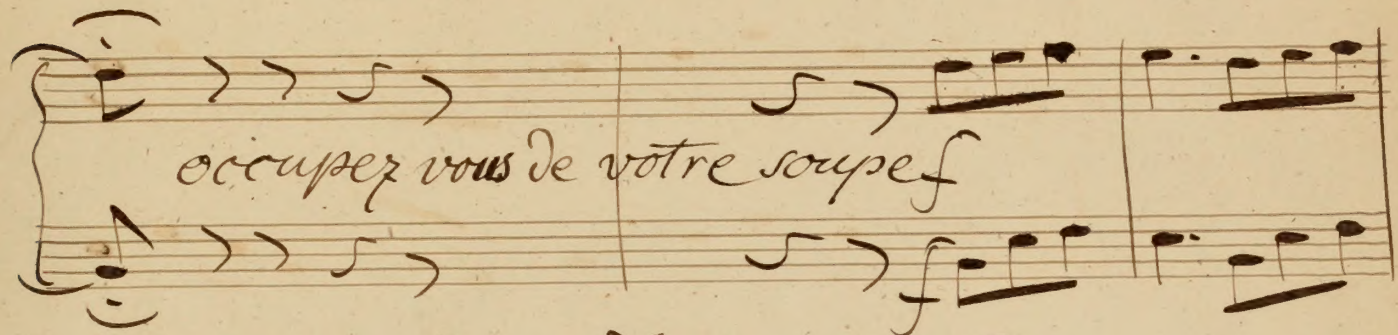 occupez vous de votre soupe f
f